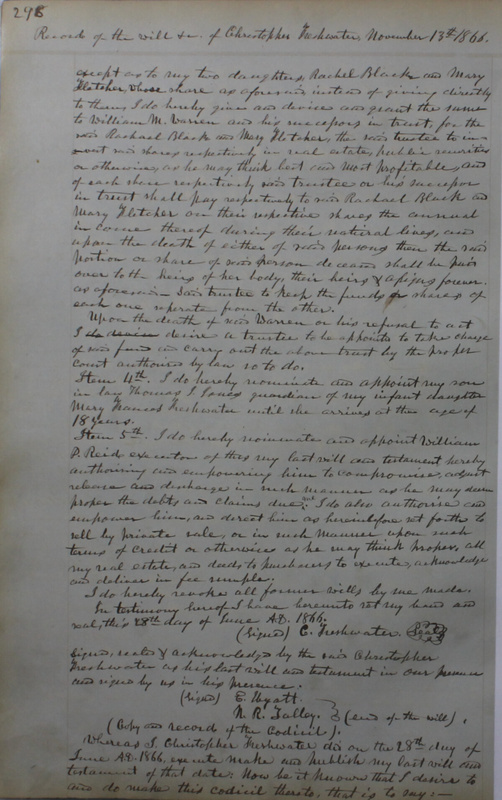 298
Record of the will &c. of Christopher Freshwater, November 13th 1866.
except as to my two daughters, Rachel Black and Mary
Fletcher, whose share as aforesaid instead of giving directly
to them, I do hereby give and devise and grant the same
to William M. Warren and his successors in trust, for the
said Rachael Black and Mary Fletcher, the said trustee to in-
vest said shares respectively in real estate, public securities
or otherwise, as he may think best and most profitable, and
of each share respectively said trustee or his successor
in trust shall pay respectively to said Rachael Black and
Mary Fletcher on their respective shares the annual
in come thereof during their natural lives, and
upon the death of either of said persons then the said
portion or share of said person deceased shall be paid
over to the heirs of her body, their heirs & assigns forever.
as aforesaid - Said trustee to keep the funds or shares of
each one seperate from the other.
Upon the death of said Warren or his refusal to act
I desire a trustee to be appointed to take charge
of said fund and carry out the above trust by the proper
court authorised by law so to do.
Item 4th. I do hereby nominate and appoint my son
in law Thomas I. Jones guardian of my infant daughter
Mary Frances Freshwater until she arrives at the age of
18 years.
Item 5th. I do hereby nominate and appoint William
P. Reid executor of this my last will and testament hereby
authorising and empowering him to compromise, adjust
release and discharge in such manner as he may deem
proper the debts and claims due me. I do also authorise and
empower him, and direct him as hereinbefore set forth to
sell by private sale, or in such manner upon such
terms of credit or otherwise as he may think proper, all
my real estate, and deeds to purchasers to execute, acknowledge
and deliver in fee simple.
I do hereby revoke all former wills by me made.
In testimony hereof I have hereunto set my hand and
seal, this 28th day of June A.D. 1866.
(Signed) C. Freshwater. Seal
Signed, sealed & acknowledged by the said Christopher
Freshwater as his last will and testament in our presence
and signed by us in his presence.
(signed) E. Wyatt.
N. R. Talley. } (end of the will).
(Copy and record of the Codicil).
Whereas I, Christopher Freshwater did on the 28th day of
June A.D. 1866, execute make and publish my last will and
testament of that date: Now be it known that I desire to
and do make this codicil thereto, that is to say:-